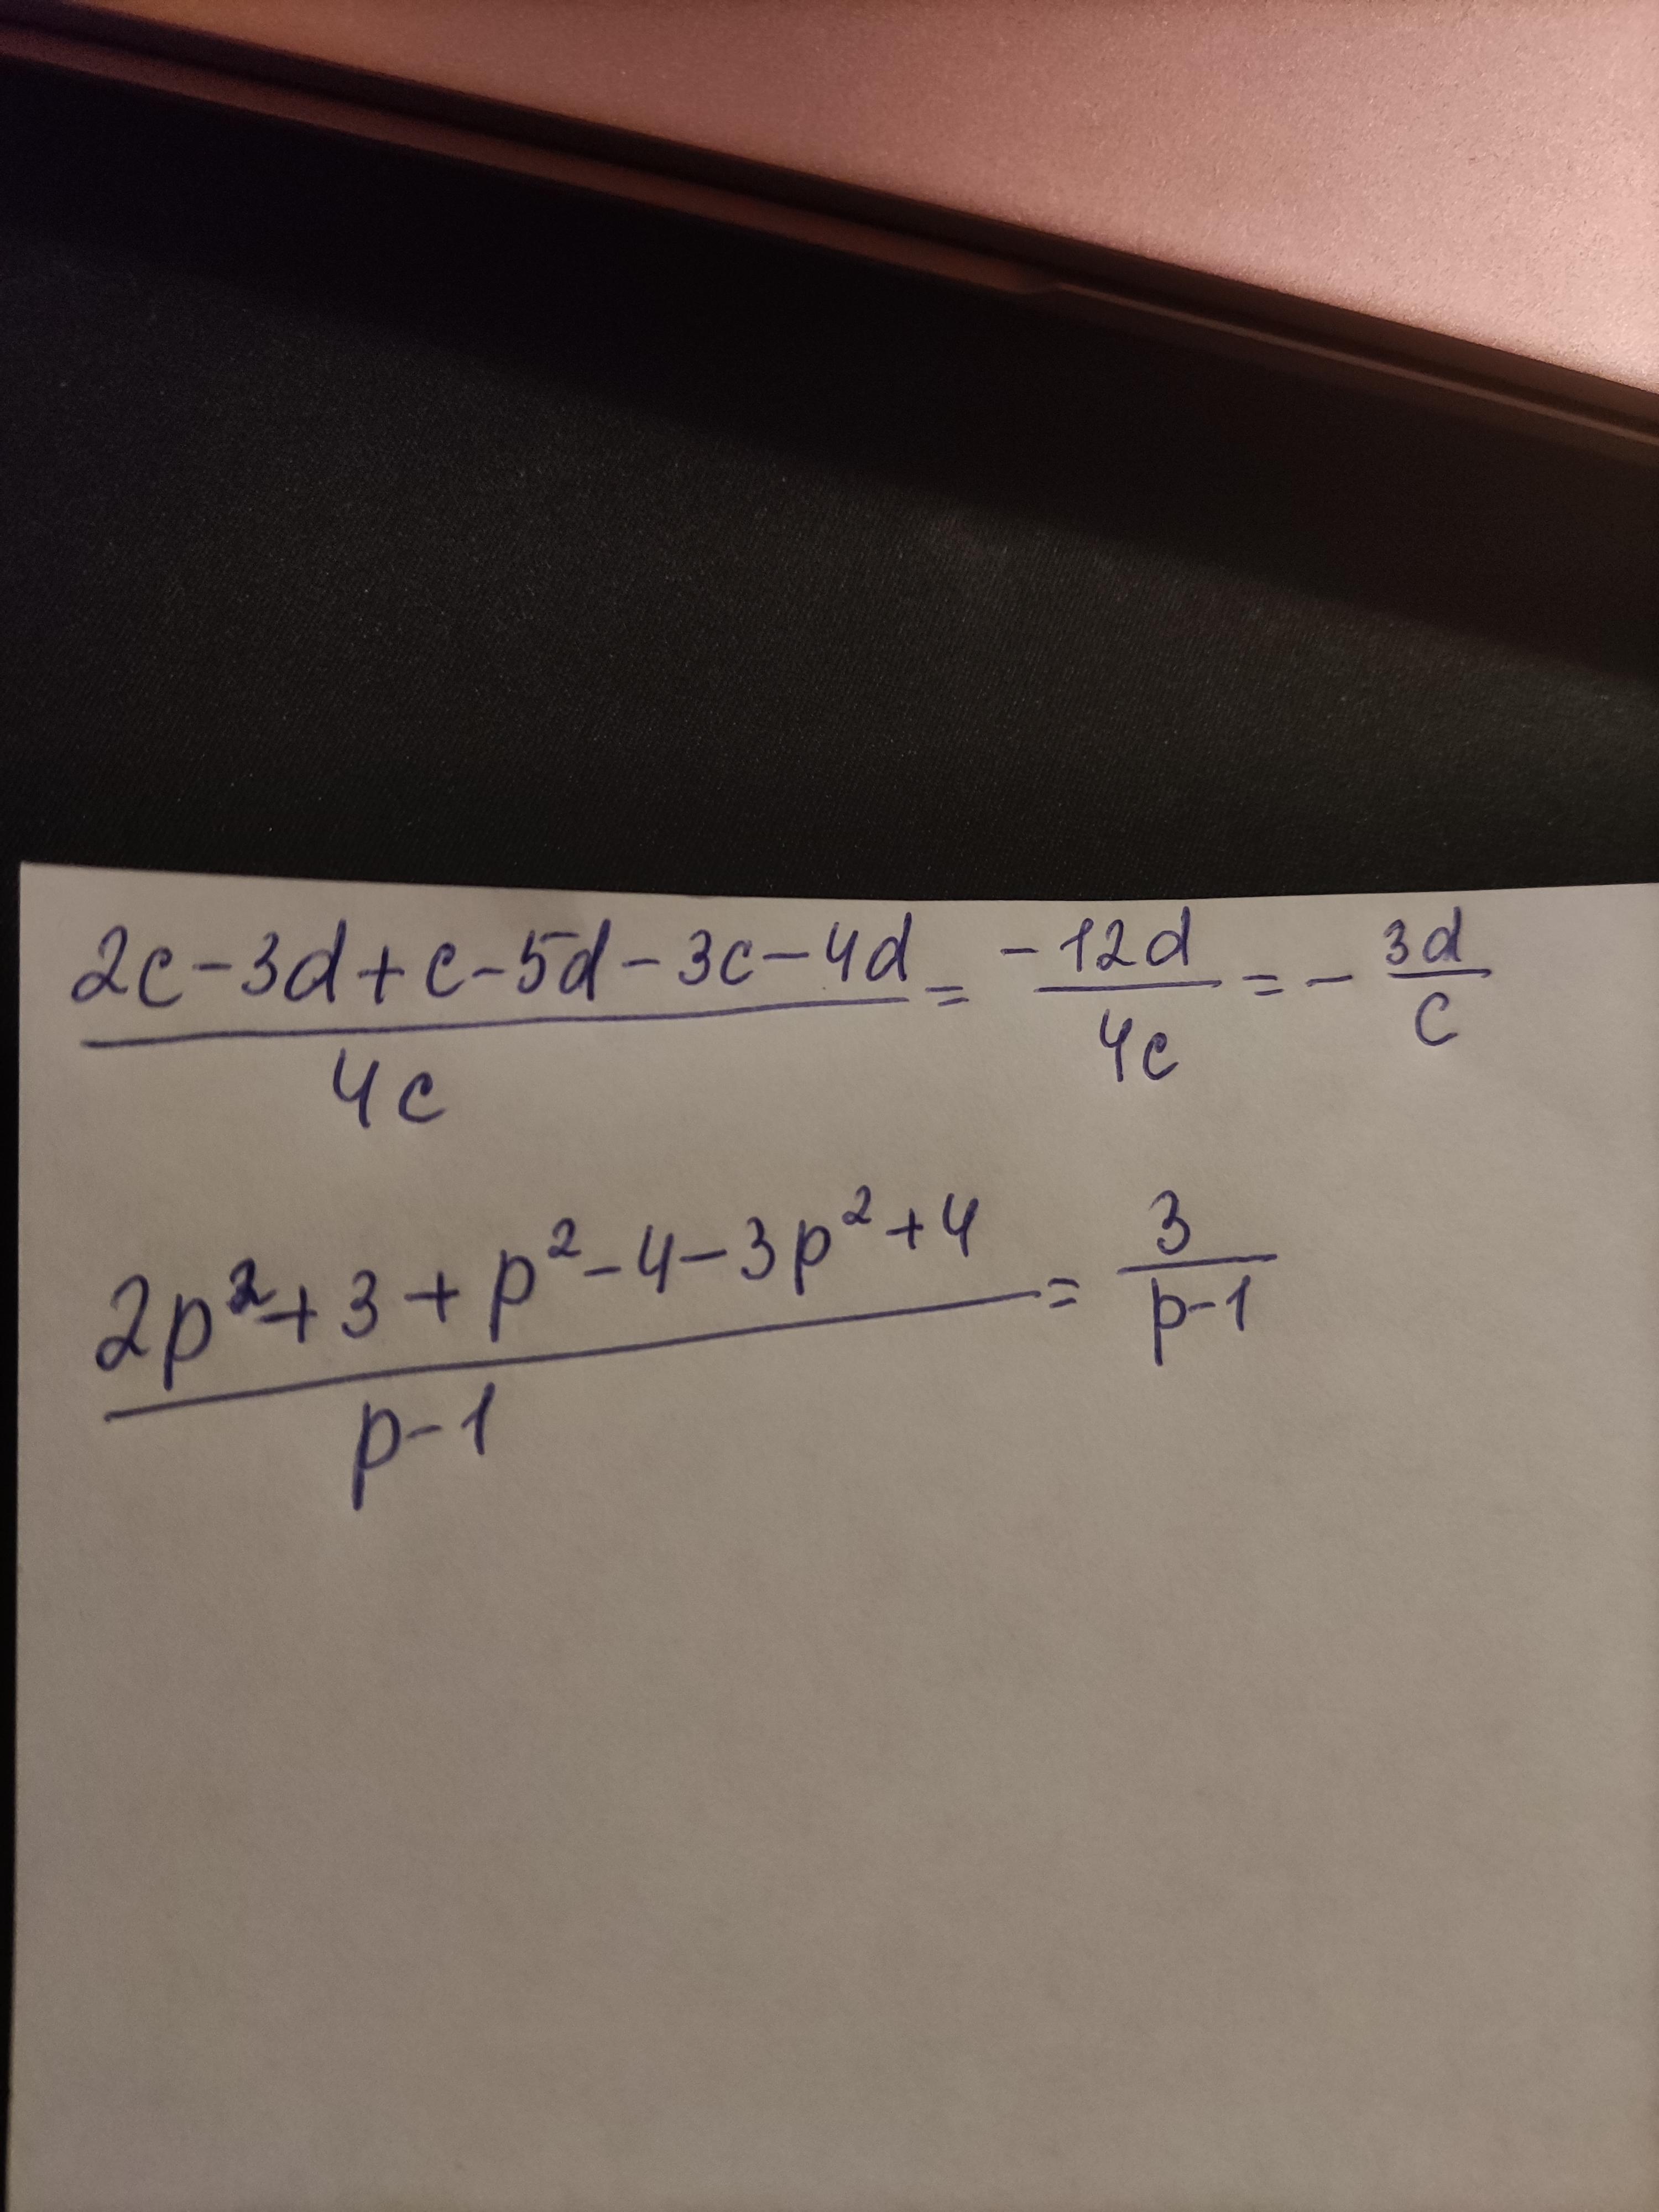 (2c-3d+c-5d-3c-4d)/(4c) = (-12d)/(4c) = - (3d)/(c)
(2p²+3+p²-4-3p²+4)/(p-1) = (3)/(p-1)